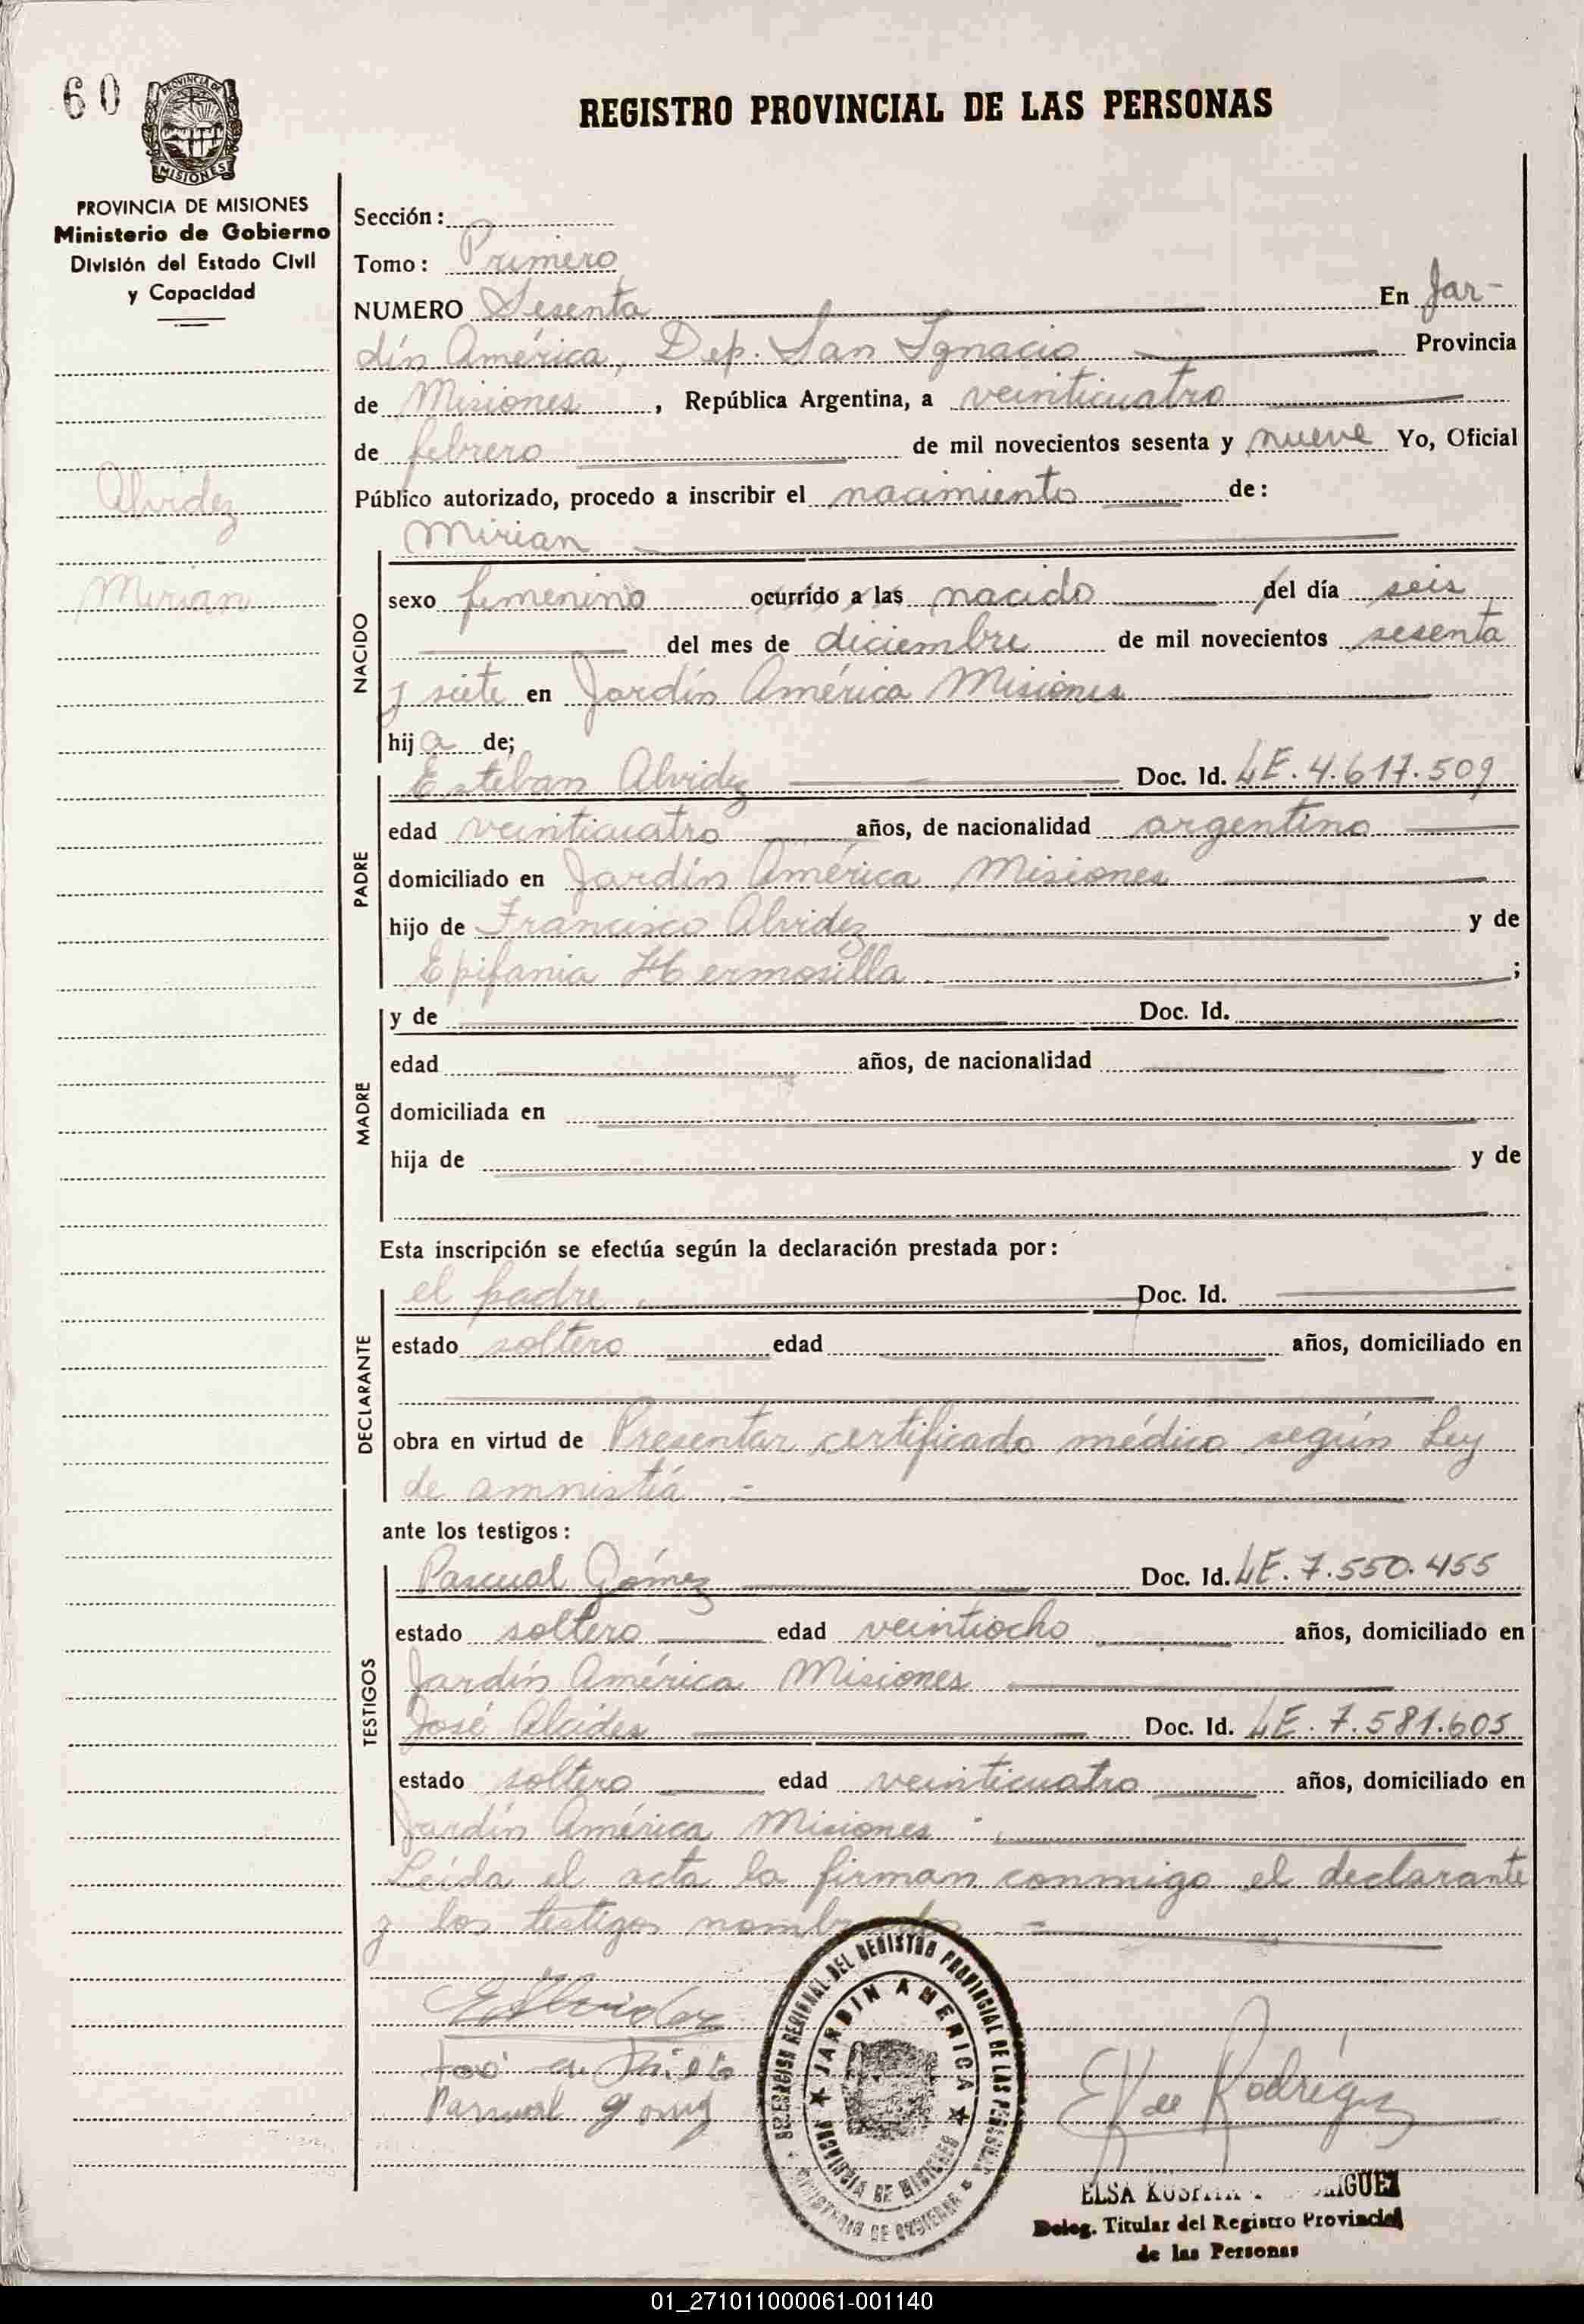 60
REGISTRO PROVINCIAL DE LAS PERSONAS
PROVINCIA DE MISIONES
Ministerio de Gobierno
División del Estado Civil
y Capacidad
Sección:
Tomo: Primero
NUMERO Sesenta En Jar-
dín América, Dep. San Ignacio Provincia
de Misiones, República Argentina, a veinticuatro
de febrero de mil novecientos sesenta y nueve Yo, Oficial
Público autorizado, procedo a inscribir el nacimiento de:
Alvidez
Mirian
Mirian
NACIDO
sexo femenino ocurrido a las nacido del día seis
del mes de diciembre de mil novecientos sesenta
y siete en Jardín América Misiones
hija de;
PADRE
Esteban Alvidez Doc. Id. LE. 4.617.509
edad veinticuatro años, de nacionalidad argentino
domiciliado en Jardín América Misiones
hijo de Francisco Alvidez y de
Epifania Hermosilla ;
MADRE
y de Doc. Id.
edad años, de nacionalidad
domiciliada en
hija de y de
Esta inscripción se efectúa según la declaración prestada por:
DECLARANTE
el padre Doc. Id.
estado soltero edad años, domiciliado en
obra en virtud de Presentar certificado médico según Ley
de amnistía .=
ante los testigos:
TESTIGOS
Pascual Gómez Doc. Id. LE. 7.550.455
estado soltero edad veintiocho años, domiciliado en
Jardín América Misiones
José Alcides Doc. Id. LE. 7.581.605
estado soltero edad veinticuatro años, domiciliado en
Jardín América Misiones
Leída el acta la firman conmigo el declarante
y los testigos nombrados . =
E Alvidez
Pascual Gomez
DELEGACION REGIONAL DEL REGISTRO PROVINCIAL DE LAS PERSONAS
JARDIN AMERICA
PROVINCIA DE MISIONES
MINISTERIO DE GOBIERNO
E K de Rodríguez
ELSA
Deleg. Titular del Registro Provincial
de las Personas
01_271011000061-001140